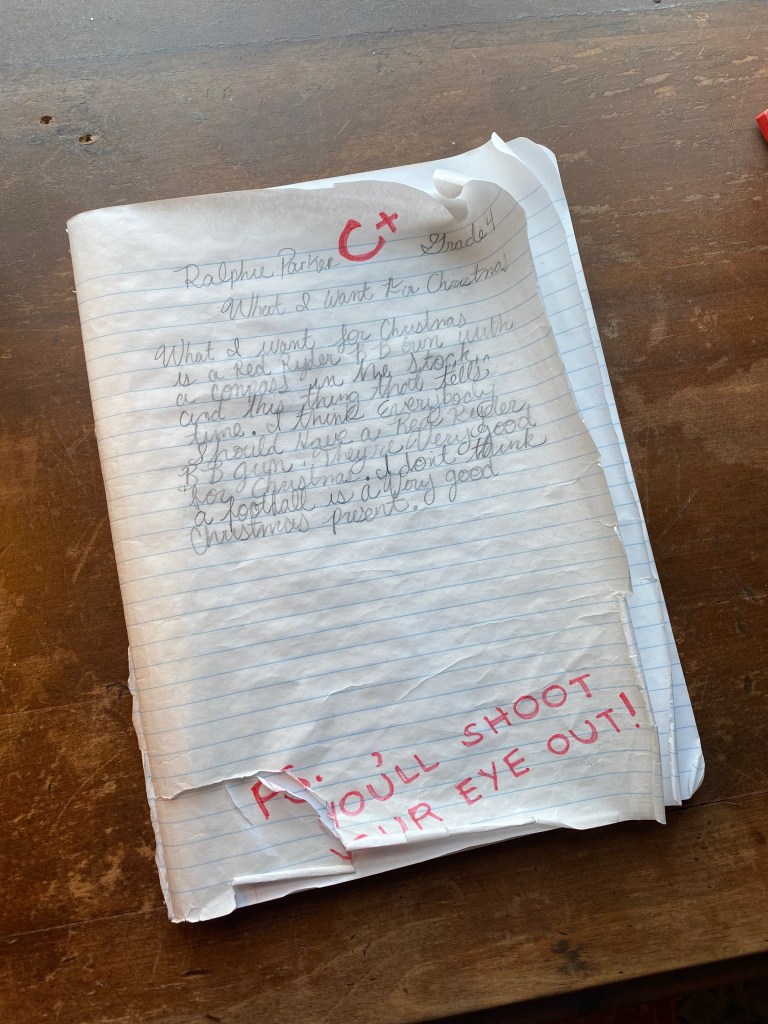 C+
Ralphie Parker Grade 4
What I want For Christmas
What I want for Christmas
is a Red Ryder B B Gun with
a compass in the stock,
and this thing that tells
time. I think Everybody
should have a Red Ryder
B B gun. They're very good
for Christmas. I don't think
a football is a very good
Christmas present.
PS. YOU'LL SHOOT
YOUR EYE OUT!